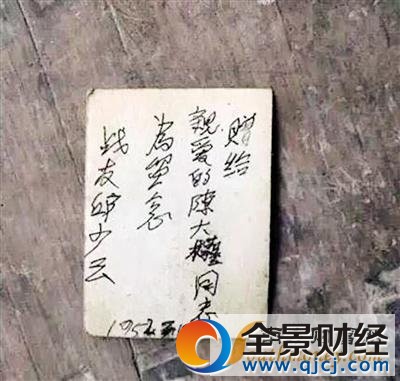 赠给
親爱的陳大同志
為留念
战友邱少云
1952.五
全景财经
www.qjcj.com